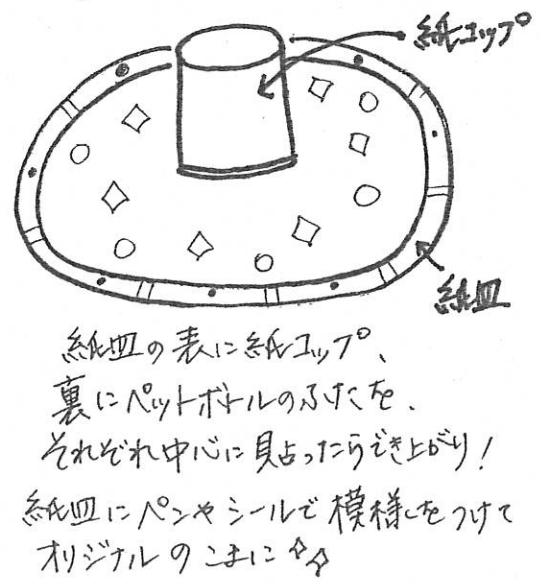 紙コップ
紙皿
紙皿の表に紙コップ、
裏にペットボトルのふたを、
それぞれ中心に貼ったらでき上がり！
紙皿にペンやシールで模様をつけて
オリジナルのこまに